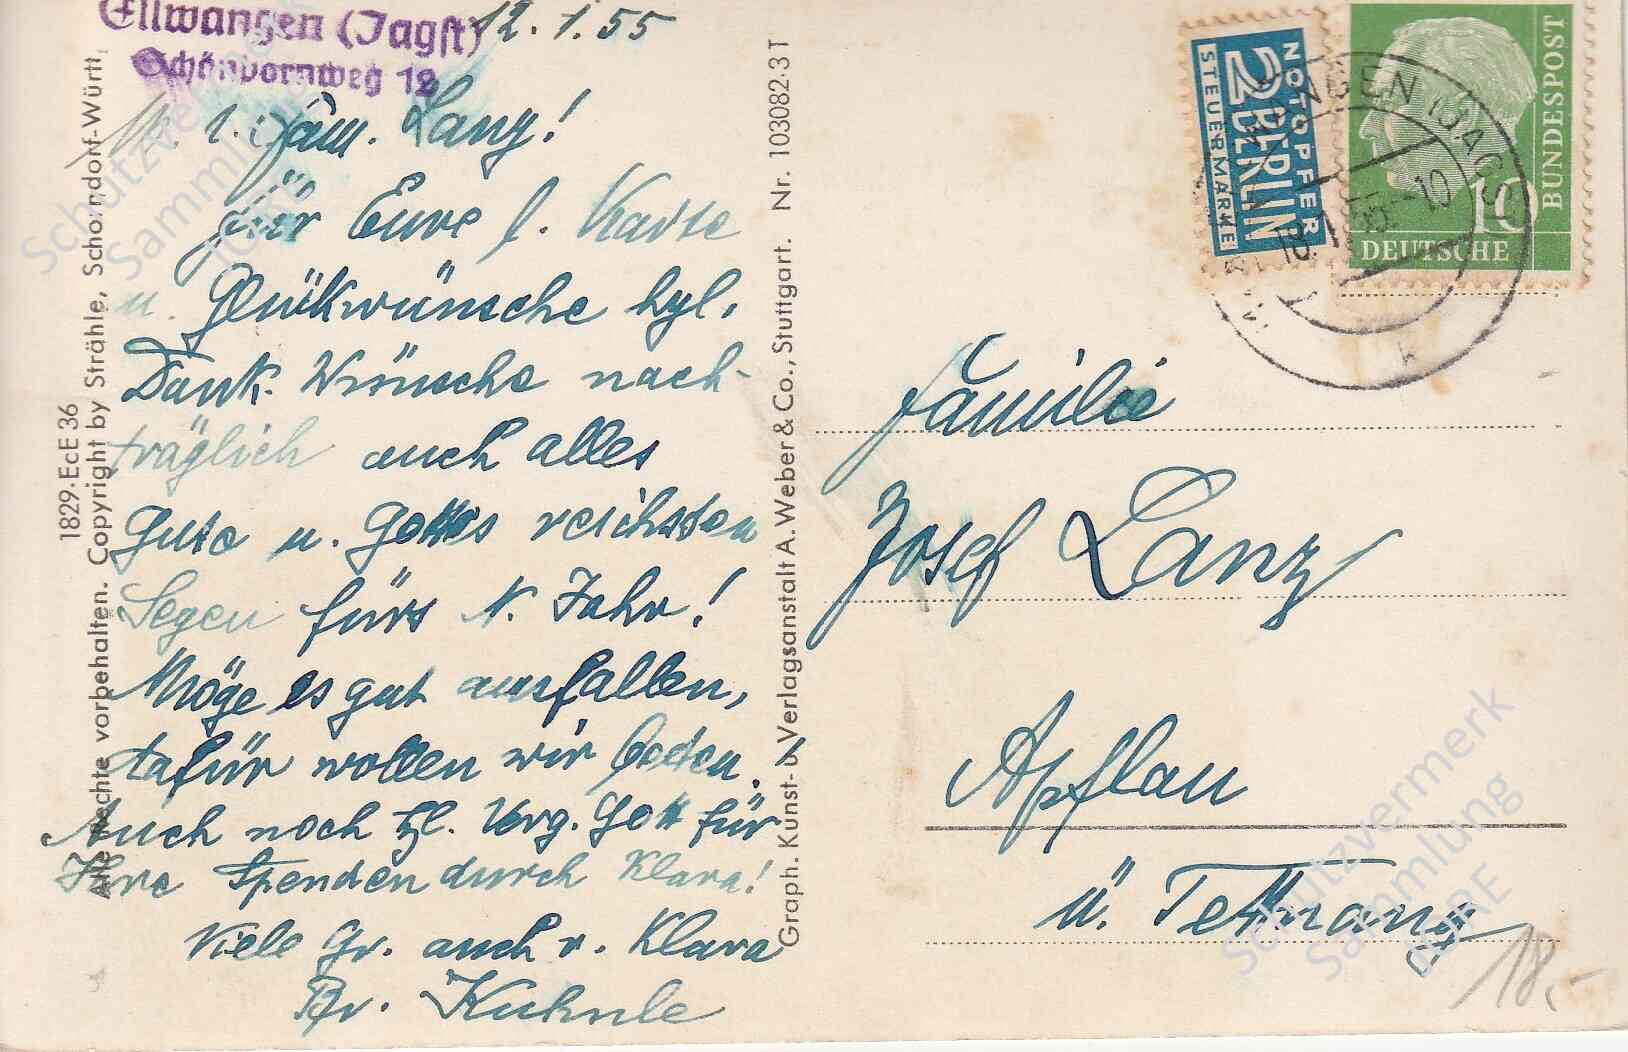 Ellwangen (Jagst)
Schönbornweg 12
12.1.55
M. l. Fam. Lanz!
Für Eure l. Karte
u. Glükwünsche hzl.
Dank. Wünsche nach-
träglich auch alles
Gute u. Gottes reichsten
Segen fürs N. Jahr!
Möge es gut ausfallen,
dafür wollen wir beten.
Auch noch hzl. Verg. Gott für
Ihre Spenden durch Klara!
Viele Gr. auch v. Klara
Br. Kuhnle
1829·EcE 36
Alle Rechte vorbehalten. Copyright by Strähle, Schorndorf-Württ
Graph. Kunst- u. Verlagsanstalt A. Weber & Co., Stuttgart. Nr. 103082·3 T
NOTOPFER
2 BERLIN
STEUERMARKE
DEUTSCHE
BUNDESPOST
10
WANGEN (JAGST)
18. 1.55-10
k
Familie
Josef Lanz
Apflau
ü. Tettnang
18,-
Schutzvermerk
Sammlung
Schutzvermerk
Sammlung